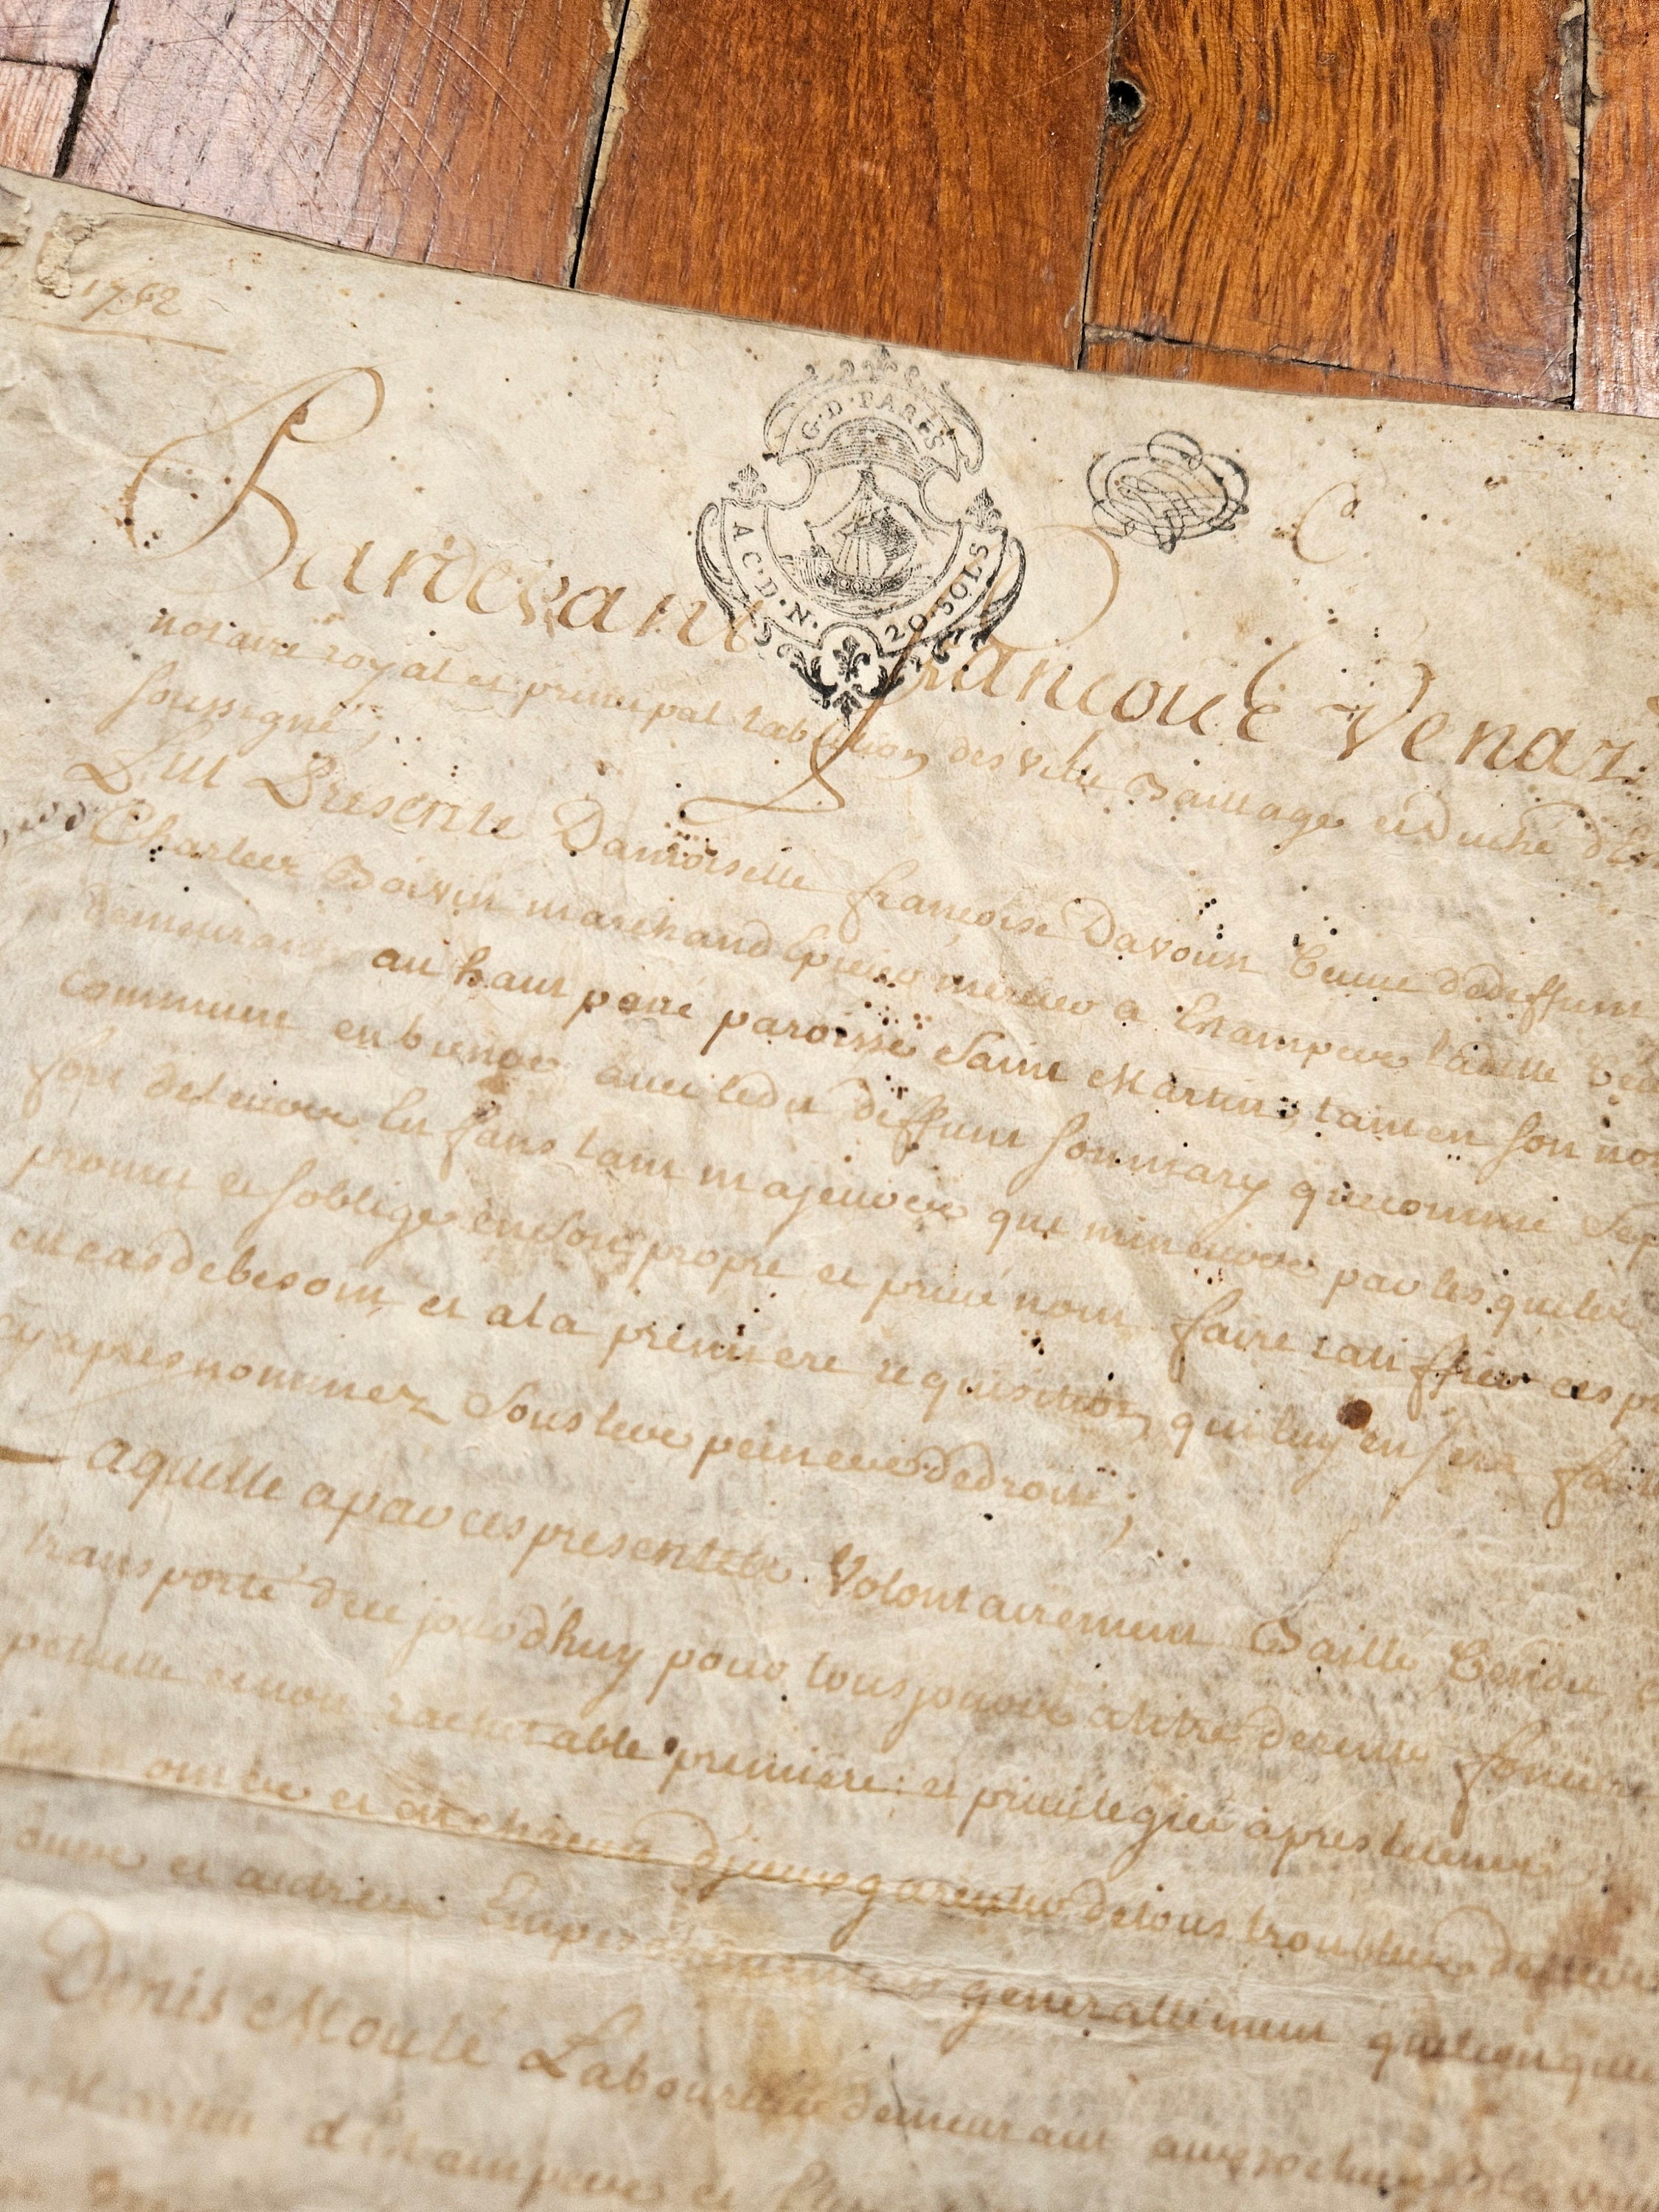 1752
G·D·PARIS
A C·D·N· 20·SOLS
C
Pardevant francois Venar
notaire royal et principal tabellion des ville Baillage et Duché d'Es
soussigné,
Fut Presente Damoiselle francoise Davoust Veuve dedeffunt
Charles Boivin marchand Epicier mercier a Estampes laditte veu
demeurant au haut pavé paroisse Saint Martin, tant en son no
commune en biens avec ledit deffunt son mary que comme se
fort de enfans tant majeurs que mineurs par lesquels
promet et soblige en son propre et privé nom faire ratiffier ces pr
en cas de besoin, et a la premiere requisition qui luy en sera fai
cy apres nommez sous les peines de droit;
Laquelle a par ces presentes Volontairement Baillé Vendu
transporté de ce jourd'huy pour tousjours a titre de rente fonciere
petuelle et non rachetable premiere et privilegiée apres le cens
et garentir de tous troubles
et autres Empeschements generallement quelconques
Denis Moulé Laboureur demeurant
Martin d'Estampes et